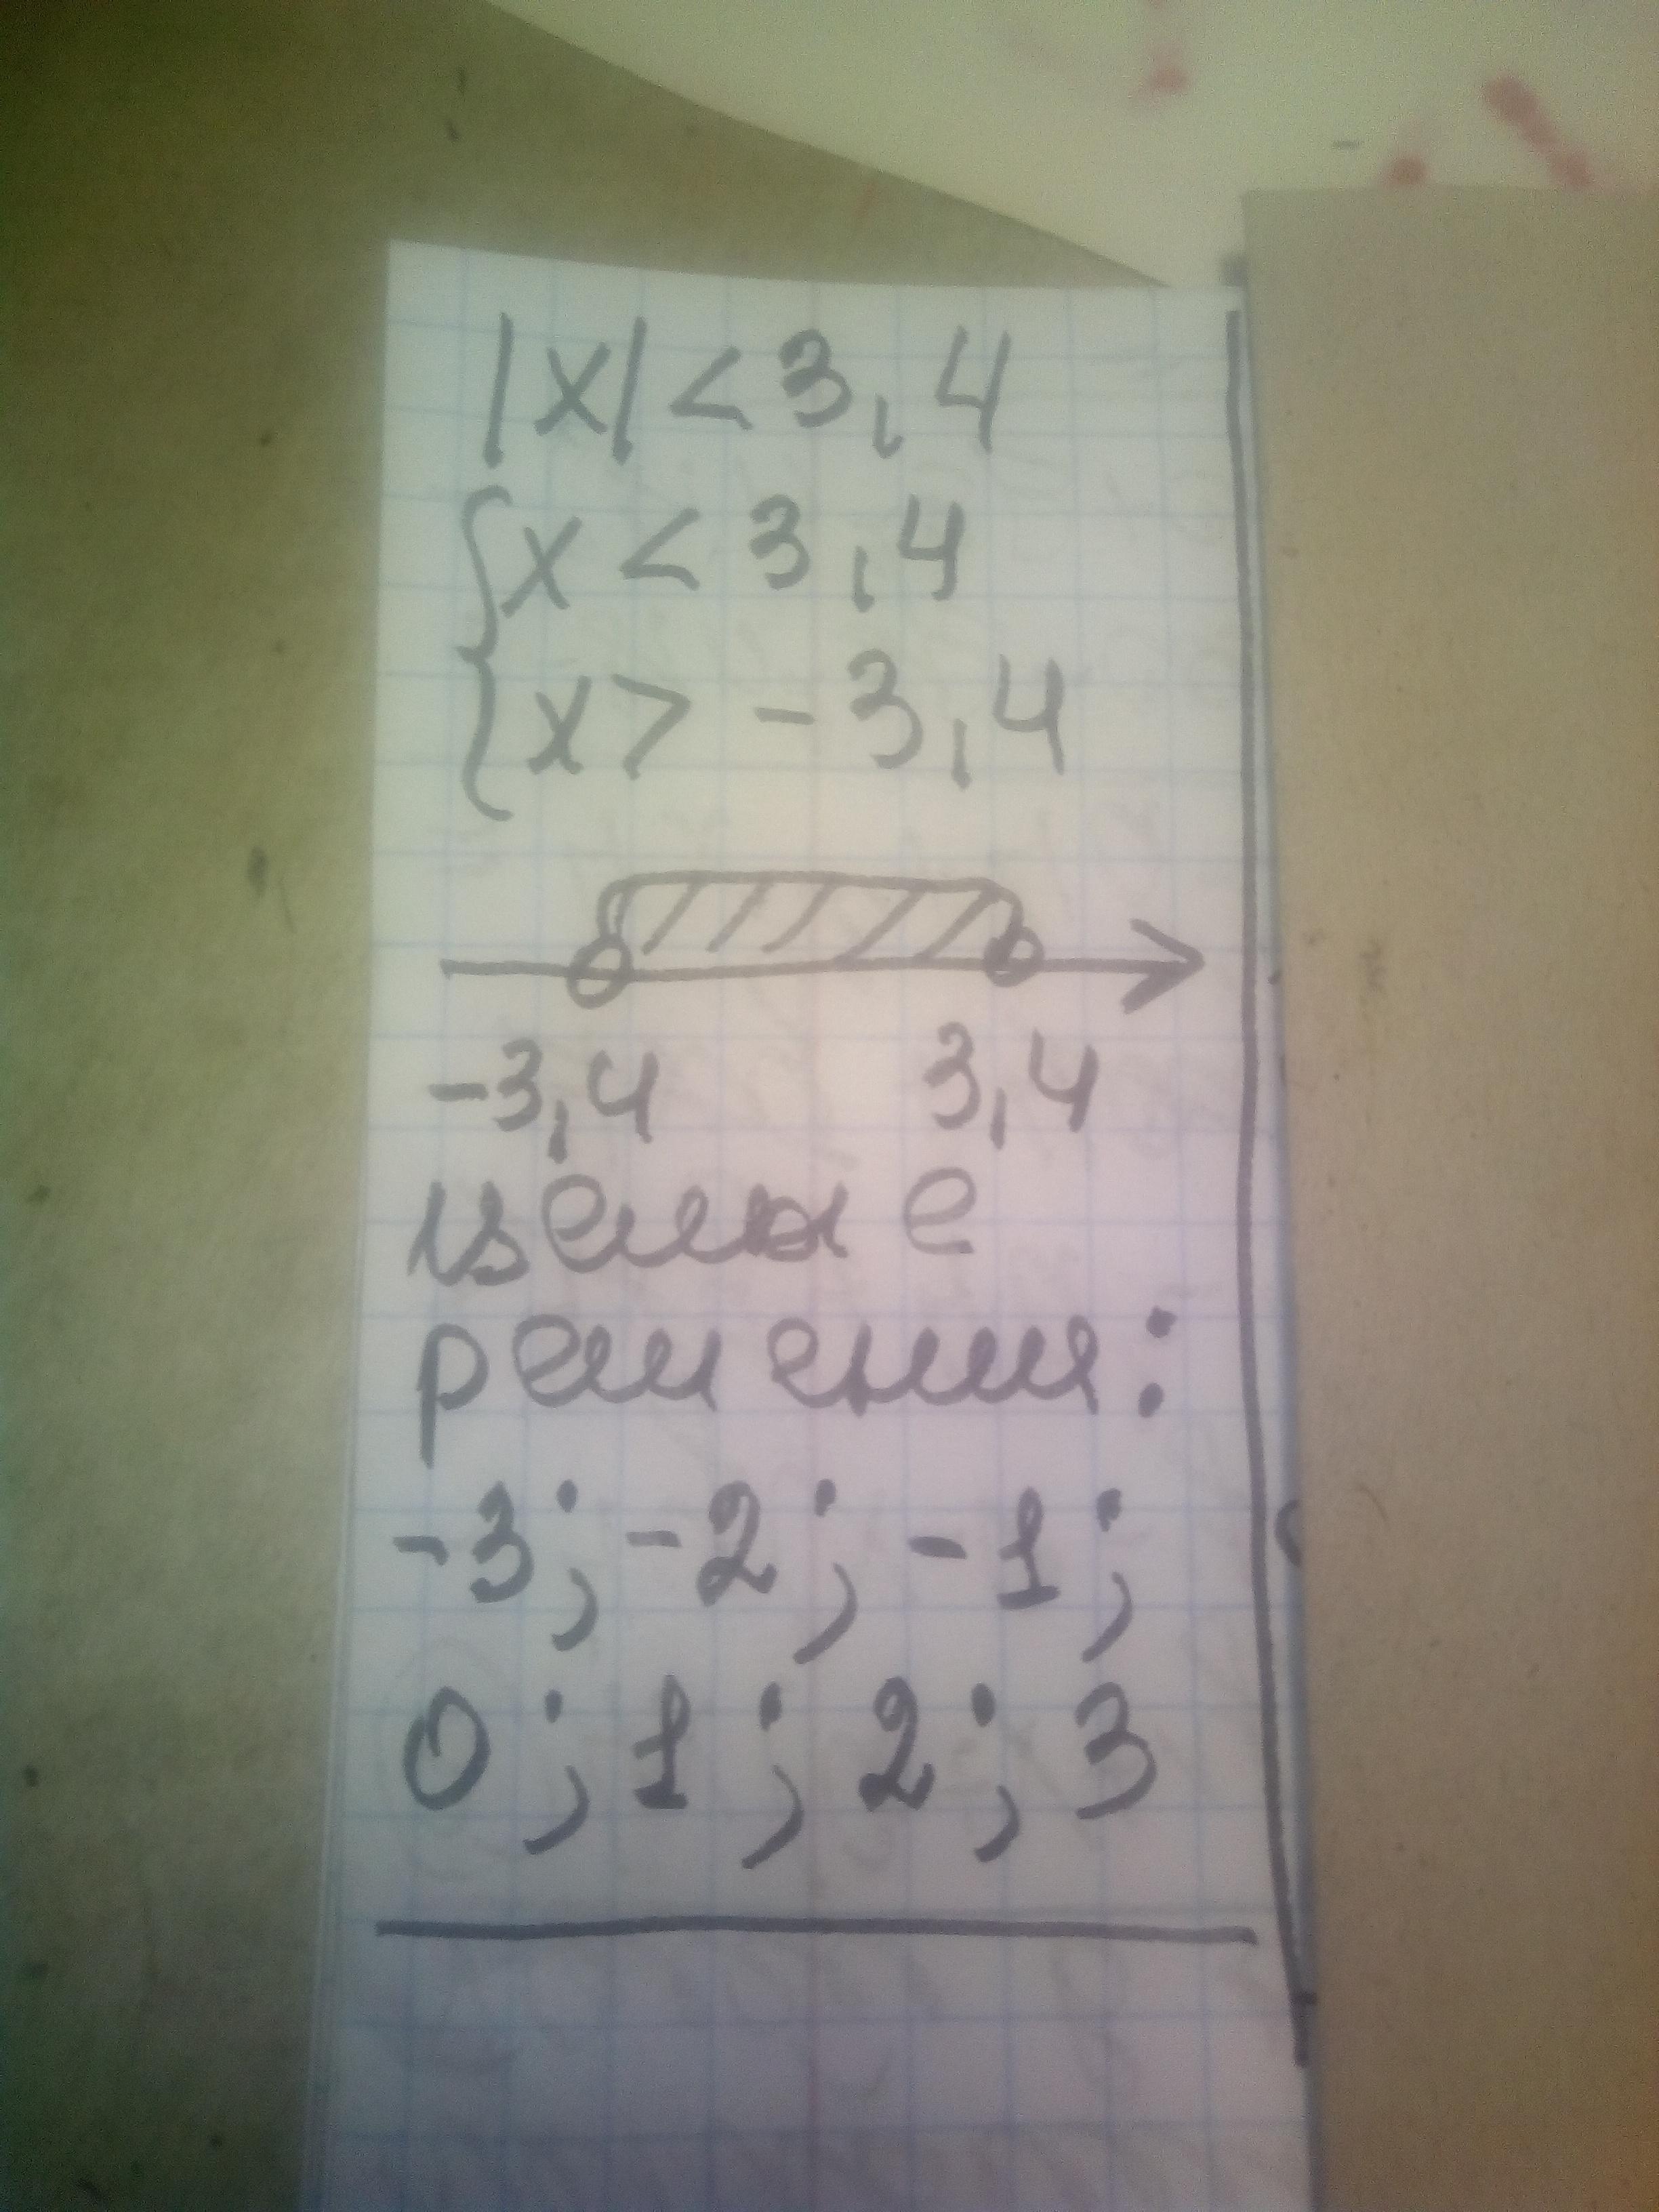 |x| < 3,4
{ x < 3,4
x > -3,4
-3,4 3,4
целые
решения:
-3; -2; -1;
0; 1; 2; 3